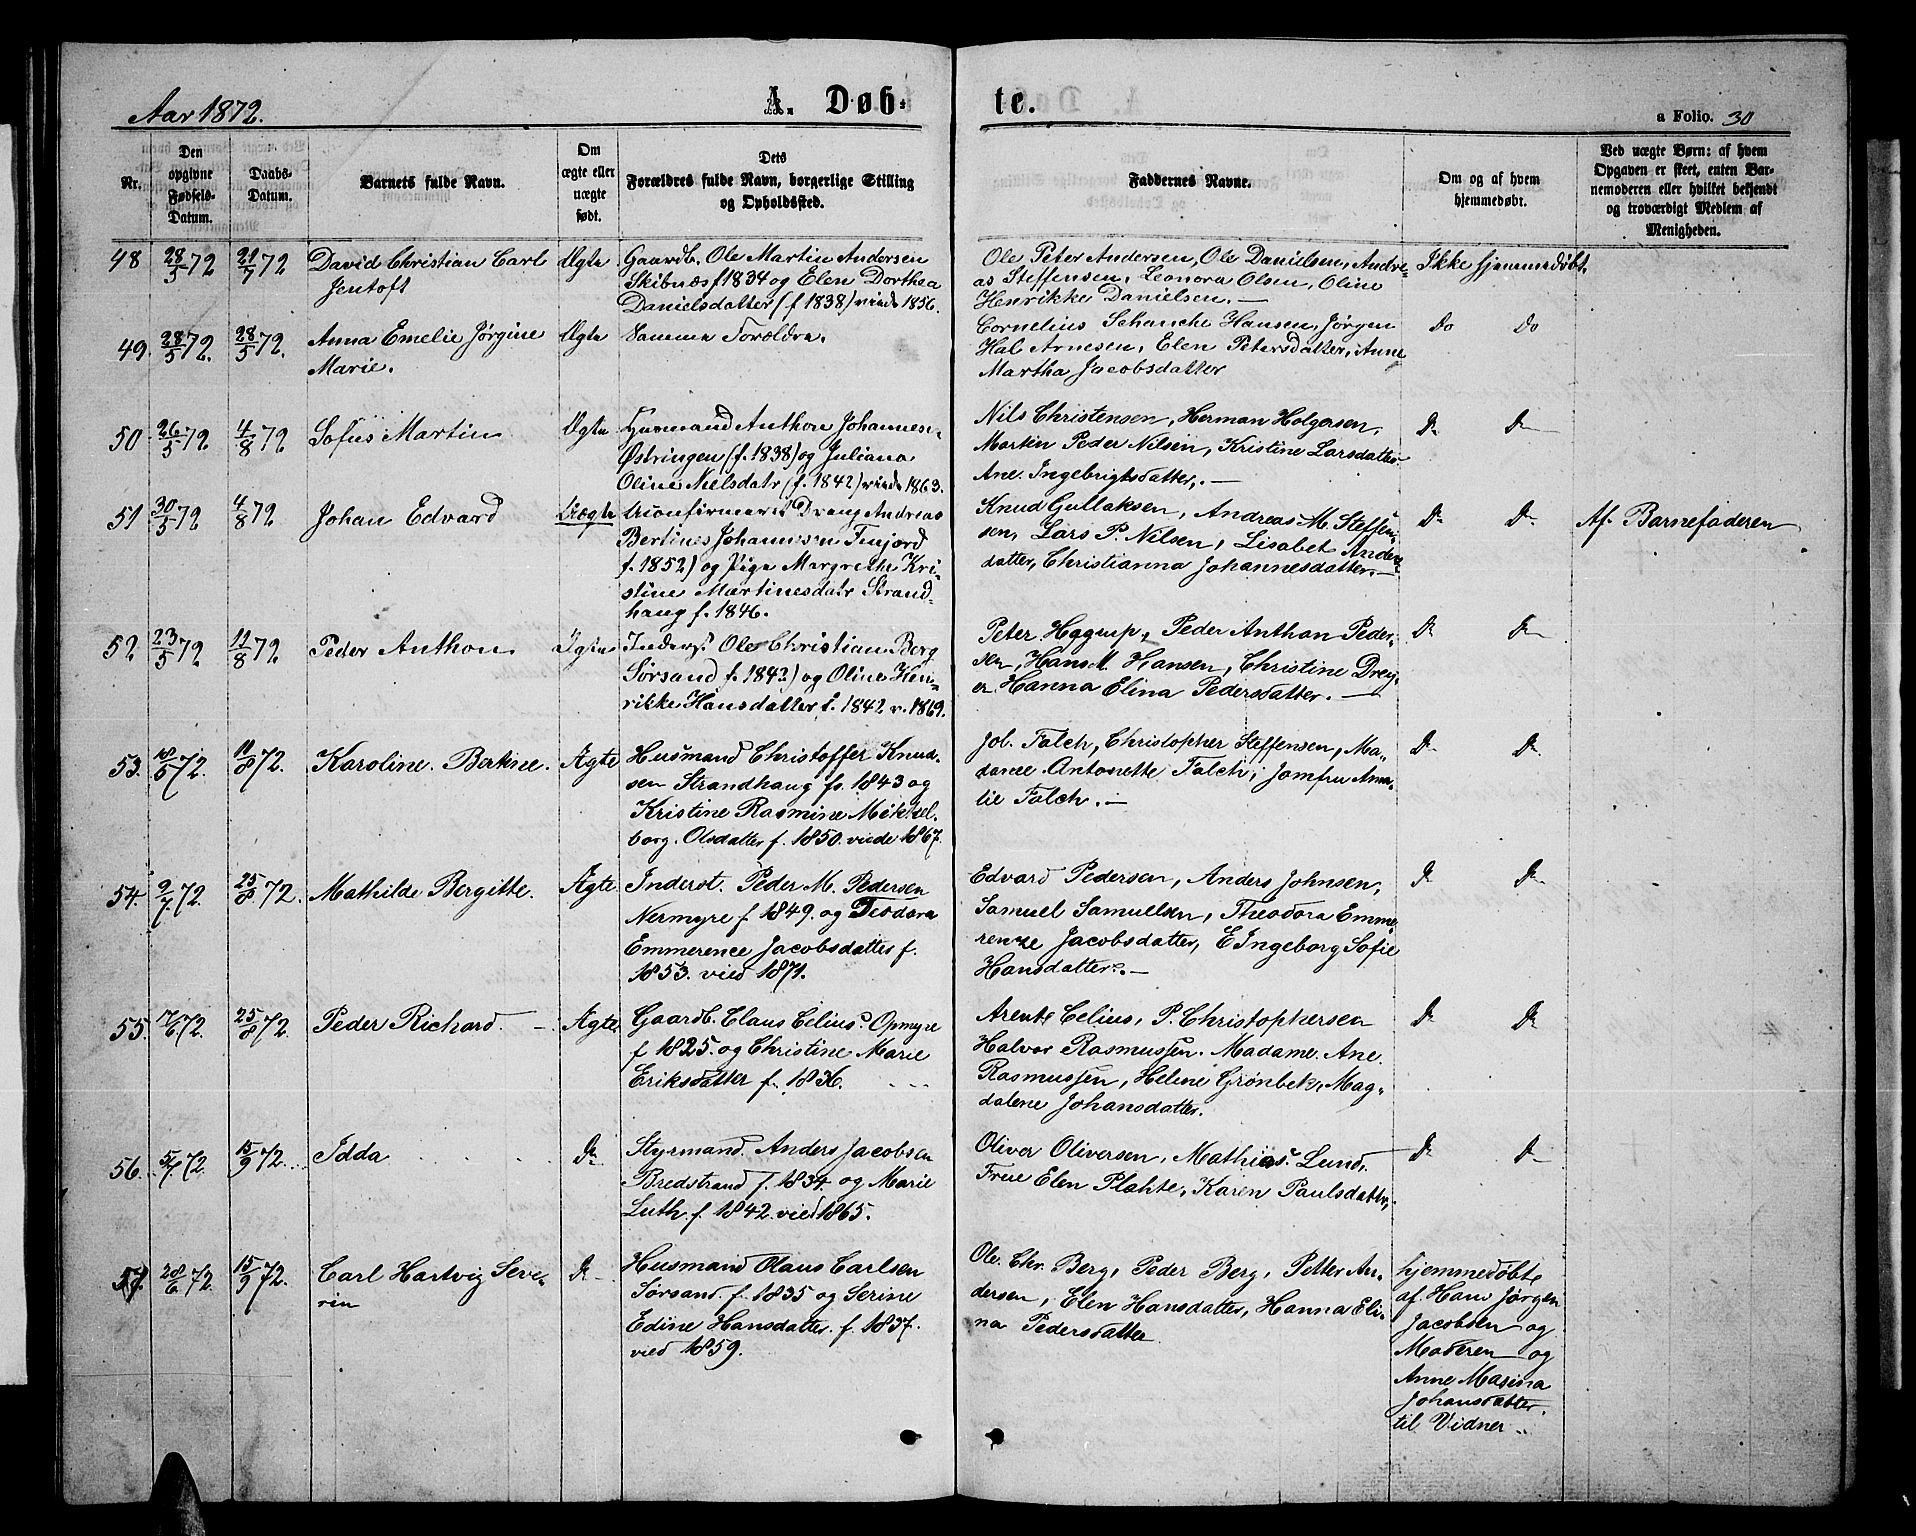 Aar 1872.
A. Døb-
te.
a Folio. 30
Nr.
Den
opgivne
Fødsels-
Datum.
Daabs-
Datum.
Barnets fulde Navn.
Om
ægte eller
uægte
født.
Dets
Forældres fulde Navn, borgerlige Stilling
og Opholdssted.
Faddernes Navne.
Om og af hvem
hjemmedøbt.
Ved uægte Børn: af hvem
Opgaven er skeet, enten Bar-
nemoderen eller hvilket bekjendt
og troværdigt Medlem af
Menigheden.
48 28/5 72 21/7 72
David Christian Carl
Jentoft
Ægte
Gaardb. Ole Martin Andersen
Skibnæs f 1834 og Elen Dorthea
Danielsdatter (f 1838) viede 1856.
Ole Peter Andersen, Ole Danielsen, Andre-
as Steffensen, Leonora Olsen, Oline
Henrikke Danielsen.—
Ikke hjemmedøbt.
49. 28/5 72. 28/5 72.
Anna Emelie Jørgine
Marie.
Ægte
Samme Forældre.
Cornelius Schanche Hansen, Jørgen
Hal Arnesen, Elen Petersdatter, Anne
Martha Jacobsdatter
Do Do
50. 26/5 72 4/8 72
Sofus Martin
Ægte
Husmand Anthon Johannes-
Østringen (f. 1838) og Juliana
Oline Nielsdatr (f. 1842) viede 1863.
Nils Christensen, Herman Holgersen,
Martin Peder Nilsen, Kristine Larsdatter
Ane Ingebrigtsdatter,.—
Do Do
51. 30/5 72 4/8 72
Johan Edvard
Uægte
Ukonfirmeret Dreng Andreas
Bertines Johannesen Finjord
f. 1852) og Pige Margrethe Kri-
stine Martinesdatr Strand-
haug f. 1846.
Knud Gullaksen, Andreas M. Steffen-
sen, Lars P. Nilsen, Lisabet Anders-
datter, Christianna Johannesdatter.—
Do Do
Af Barnefaderen
52 23/5 72 11/8 72
Peder Anthon
Ægte
Inderst Ole Christian Berg
Sørsand f. 1842) og Oline Hen-
rikke Hansdatter f. 1842 v. 1869.
Peter Hggrup, Peder Anthon Peder-
sen, Hans M. Hansen, Christine Drey-
er Hanna Elina Pedersdatter.—
Do Do
53. 18/5 72. 11/8 72.
Karoline Berkine.
Ægte
Husmand Christoffer Knud-
sen Strandhaug fs. 1843 og
Kristine Rasmine Mekkel-
borg. Olsdatter f. 1850. viede 1867.
Job. Falch, Christopher Steffensen, Ma-
dame Antonette Falch, Jomfru Ama-
lie Falch.—
Do Do
54. 9/7 72. 25/8 72.
Mathilde Bergitte.
Ægte
Inderst. Peder M. Pedersen
Nermyre f 1849. og Teodora
Emmerence Jacobsdatter f.
1853. vied 1871.
Edvard Pedersen, Anders Johnsen,
Samuel Samuelsen, Theodora Emme-
rense Jacobsdatter, E Ingeborg Sofie
Hansdatter.—
Do Do
55. 17/6 72. 25/8 72.
Peder Richard.
Ægte
Gaardb. Claus Celius. Opmyre
f 1825. og Christine Marie
Eriksdatter f. 1836.
Arent Celius, P. Christophersen
Halvor Rasmussen. Madame. Ane.
Rasmussen, Helene Grønbek, Mag-
dalene Johansdatter.
Do Do
56. 5/7 72. 15/9 72.
Idda
Do
Styrmand. Anders Jacobsen
Bredstrand f. 1834. og Marie
Luth. f. 1842. vied 1865.
Oliver Oliversen, Mathias. Lund,
Frue Elen Plahte, Karen Paulsdatter,
Do Do
57. 28/6 72. 15/9 72.
Carl Hartvig Seve-
rin
Do
Husmand Olaus Carlsen
Sørsand. f. 1835 og Serine
Edine Hansdatter. f. 1837.
vied 1859.
Ole. Chr. Berg, Peder Berg, Petter An-
dersen, Elen Hansdatter, Hanna Eli-
na Pedersdatter
hjemmedøbt
af Hans Jørgen
Jacobsen og
Moderen og
Anne Masina
Johansdatter.
til Vidner.